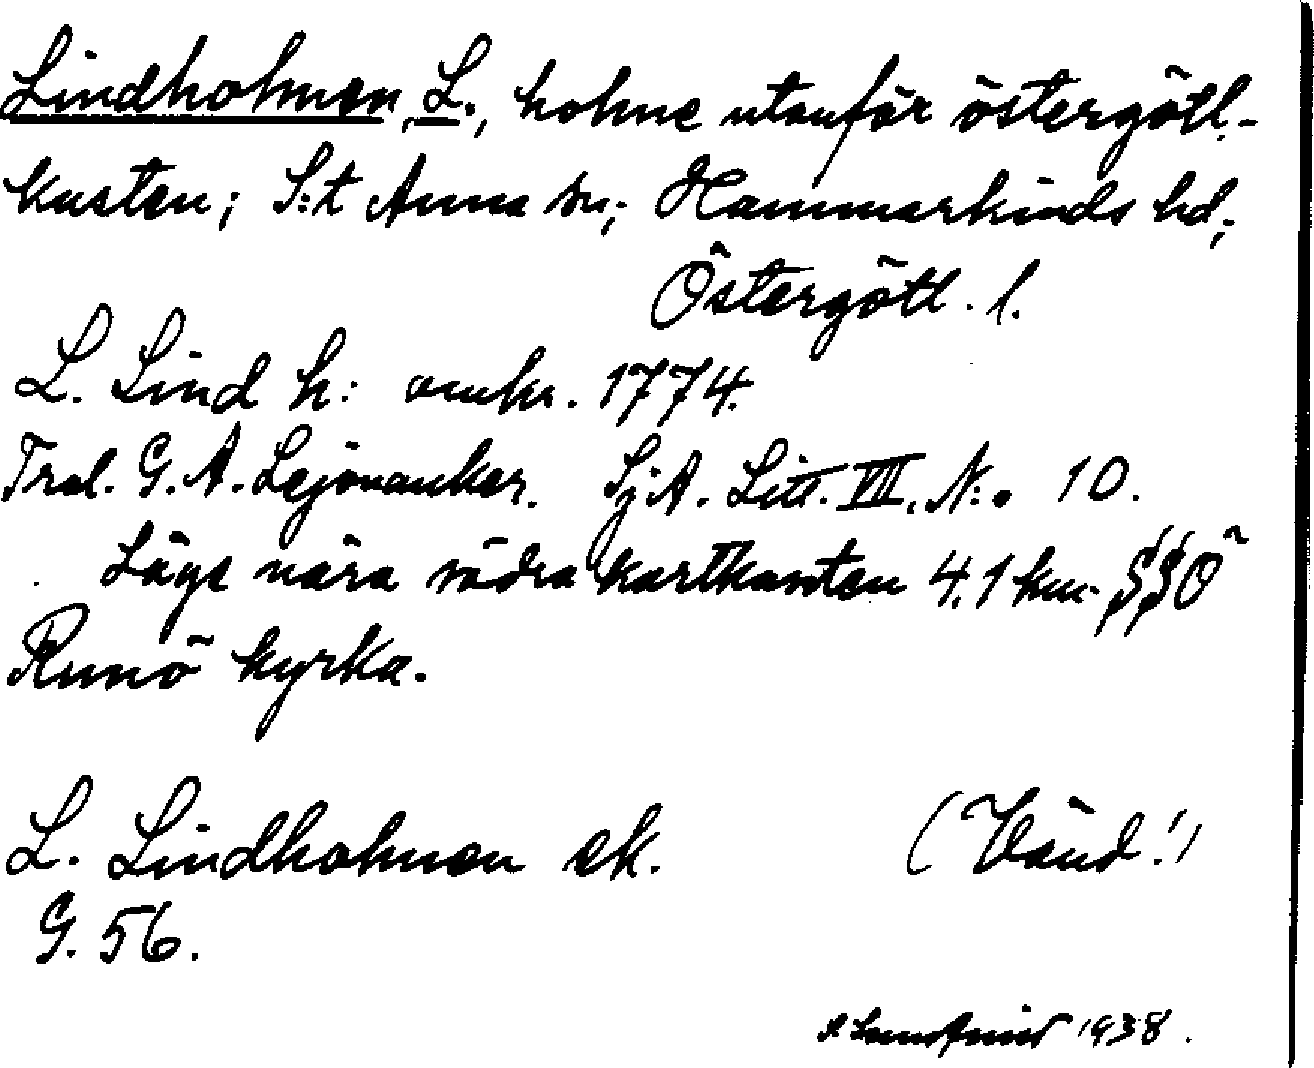 Lindholmen, L., holme utanför östergötl.-
kusten; S:t Anna sn; Hammarkinds hd;
Östergötl. l.
L. Lind h: omkr. 1774.
Tral. G. A. Lejonanker. SjA. Litt. VIII. N:o 10.
Läge nära södra kartkanten 4,1 km. SSO
Runö kyrka.
L. Lindholmen ek. (Vänd!)
G. 56.
1938.